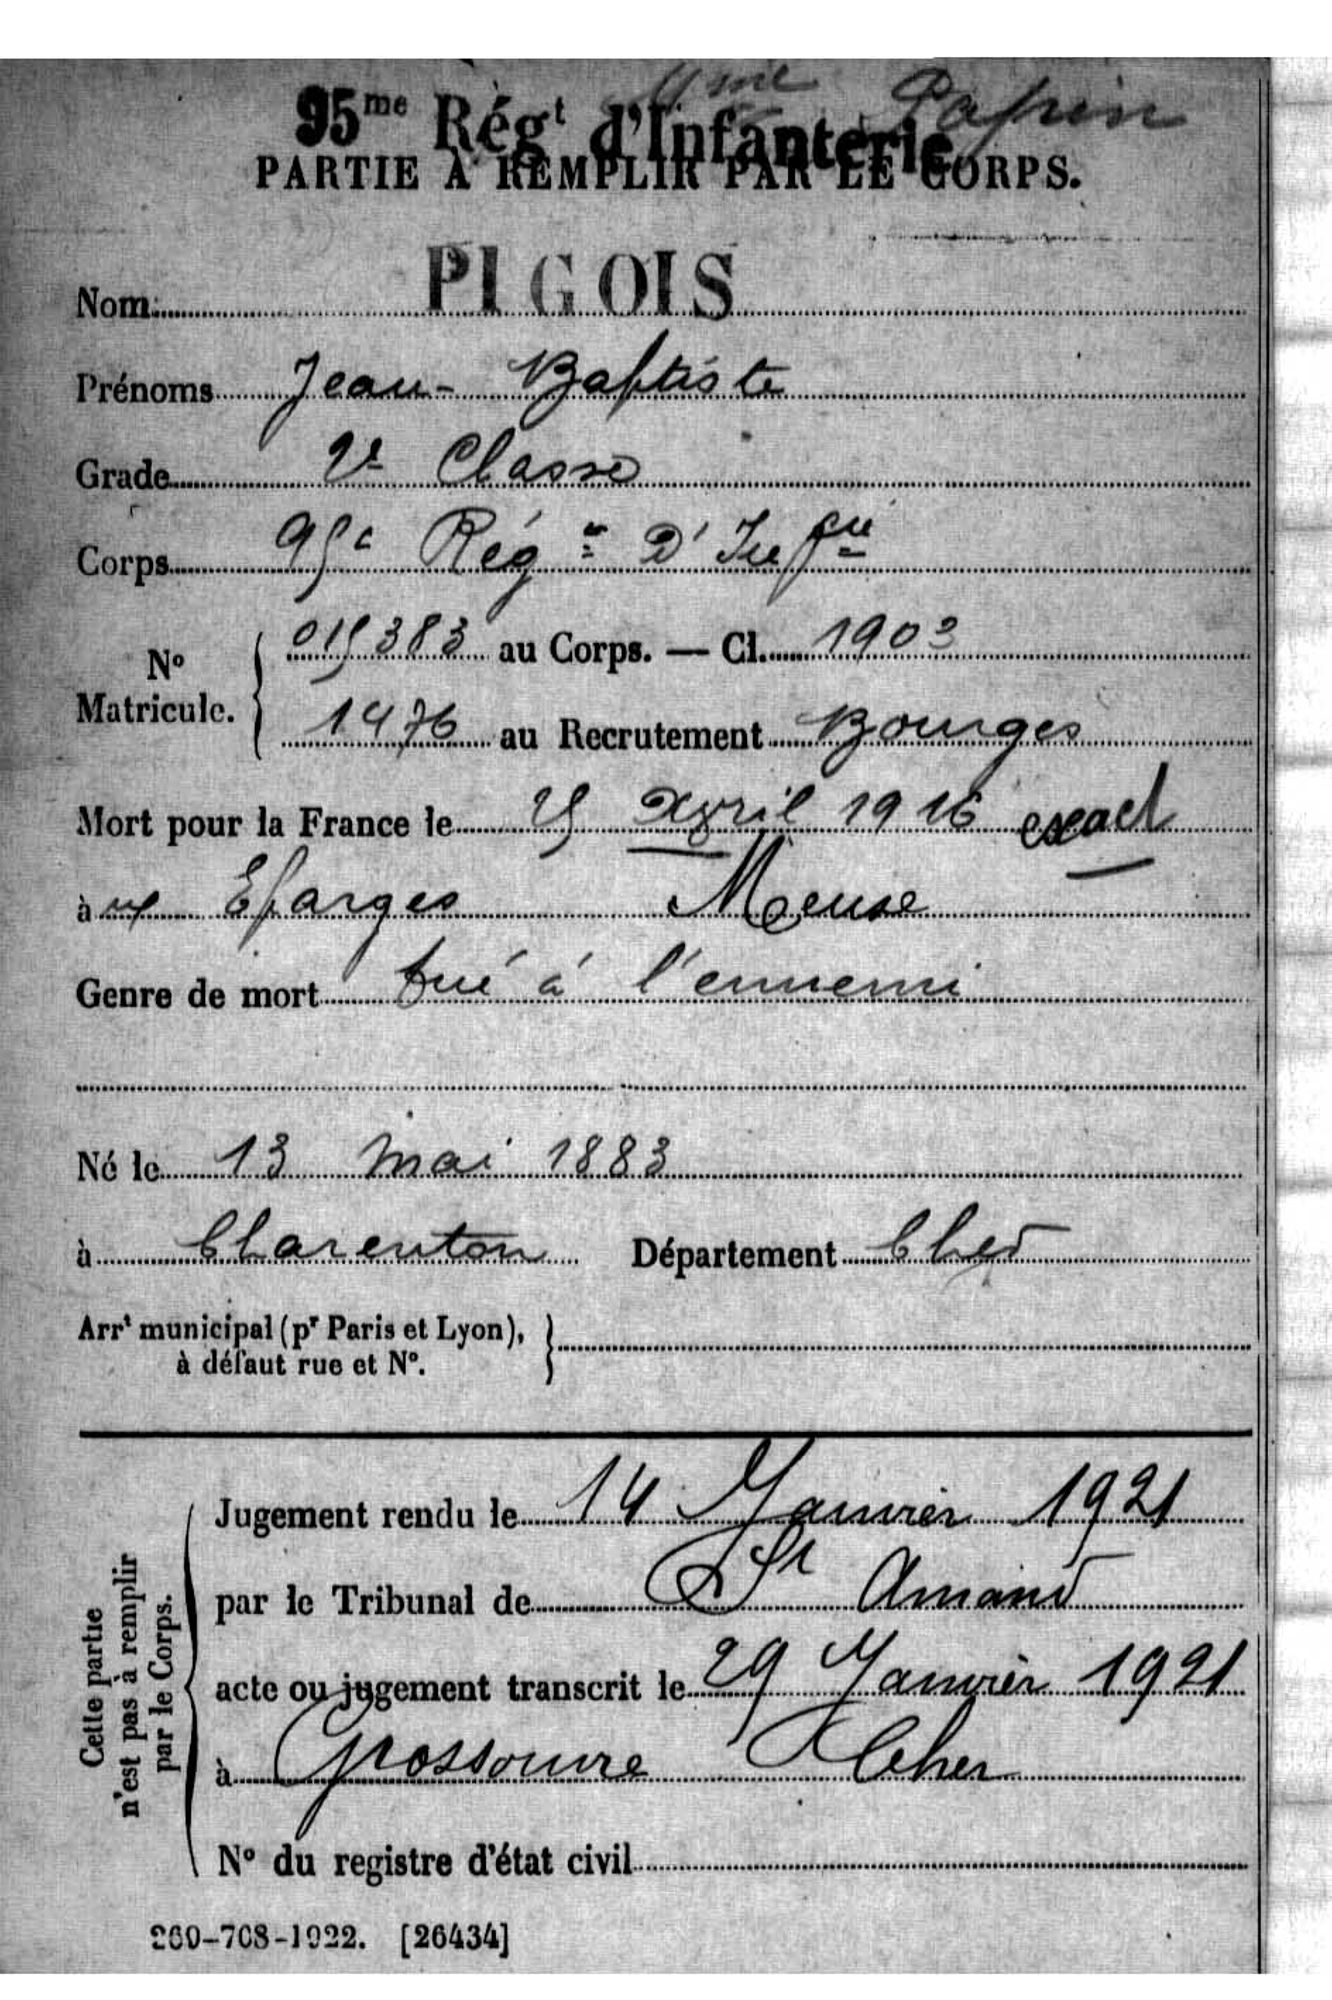 Mme Papin
95me Régt d'Infanterie
PARTIE À REMPLIR PAR LE CORPS.
Nom PIGOIS
Prénoms Jean-Baptiste
Grade 2e Classe
Corps 95e Rég d'Infie
N° Matricule. 015383 au Corps. — Cl. 1903
1476 au Recrutement Bourges
Mort pour la France le 25 Avril 1916 exact
à ux Eparges Meuse
Genre de mort tué à l'ennemi
Né le 13 mai 1883
à Charenton Département Cher
Arrt municipal (pr Paris et Lyon),
à défaut rue et N°.
Cette partie
n'est pas à remplir
par le Corps.
Jugement rendu le 14 Janvier 1921
par le Tribunal de St Amand
acte ou jugement transcrit le 29 Janvier 1921
à Grossouvre Cher
N° du registre d'état civil
260-708-1922. [26434]